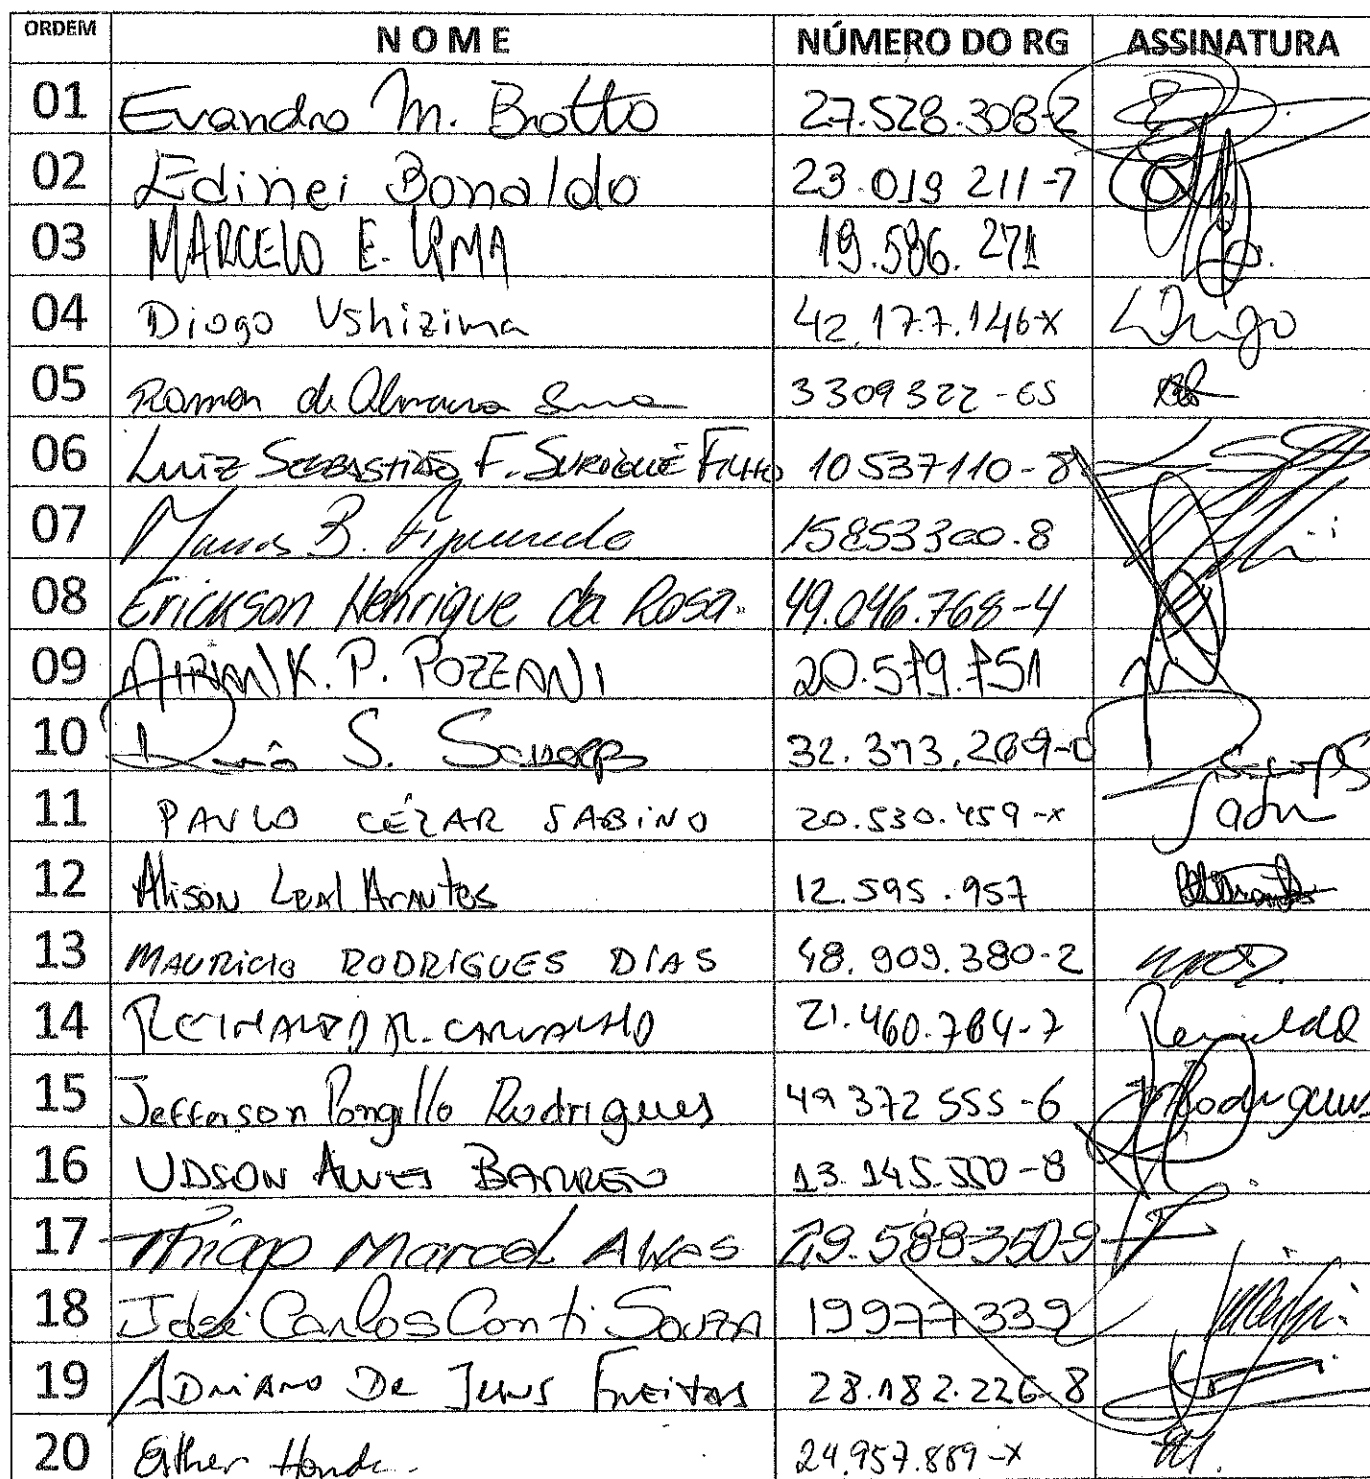 ORDEM NOME NÚMERO DO RG ASSINATURA
01 Evandro M. Brotto 27.528.308-2
02 Edinei Bonaldo 23.019 211-7
03 MARCELO E. LIMA 19.586.271
04 Diogo Ushizima 42.177.146X Diogo
05 Ramon de 3309322-65
06 Luiz SEBASTIÃO F. FILHO 10537110-8
07 B. Figueiredo 15853300.8
08 Erickson Henrique da Rosa 49.046.768-4
09 K. P. POZZANI 20.579.751
10 S. 32.373.269-0
11 PAULO CÉZAR SABINO 20.530.459-x
12 Alison Leal Arantes 12.595.957
13 MAURICIO RODRIGUES DIAS 48.909.380-2
14 REINALDO R. CARVALHO 21.460.764-7 Reinaldo
15 Jefferson Pongillo Rodrigues 49 372 555-6 Rodrigues
16 UDSON ALVES 13.145.550-8
17 Thiago Marcel Alves 29.5883509
18 José Carlos Conti Souza 19977339
19 ADRIANO DE JESUS FREITAS 28.182.226-8
20 Esther Honda 24.957.889-X